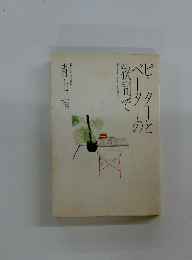 ピーターと
ペーターの
狭間で
青山 南